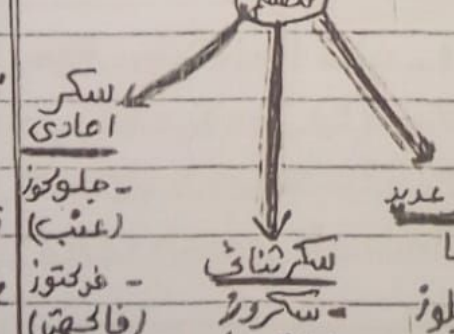 سكر
احادى
- جلوكوز
(عنب)
- فركتوز
(فاكهة)
سكر ثنائى
- سكروز
عديد
لوز